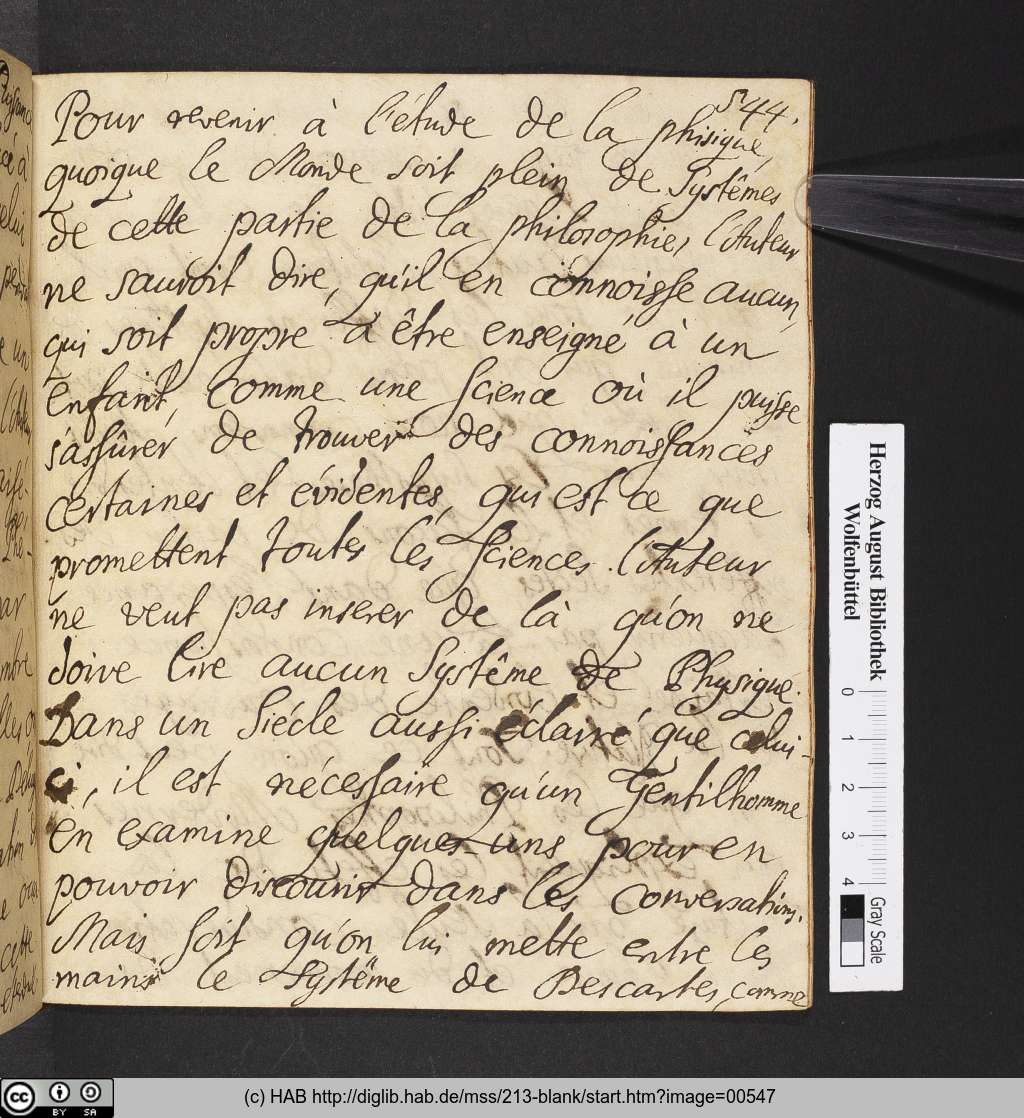 544.
Pour revenir à l'étude de la phisique,
quoique le Monde soit plein de Systêmes
de cette partie de la philosophie, l'Auteur
ne sauroit dire, qu'il en connoisse aucun,
qui soit propre a être enseigné à un
enfant, comme une Science où il puisse
s'assûrer de trouver des connoissances
certaines et évidentes, qui est ce que
promettent toutes les Sciences. l'Auteur
ne veut pas inserer de là qu'on ne
doive lire aucun Systême de Physique.
Dans un Siécle aussi éclairé que celui-
ci, il est nécessaire qu'un Gentilhomme
en examine quelques-uns pour en
pouvoir discourir dans les conversations.
Mais soit qu'on lui mette entre les
mains le Systême de Descartes, comme
Herzog August Bibliothek
Wolfenbüttel
0 1 2 3 4
Gray Scale
cc BY SA
(c) HAB http://diglib.hab.de/mss/213-blank/start.htm?image=00547